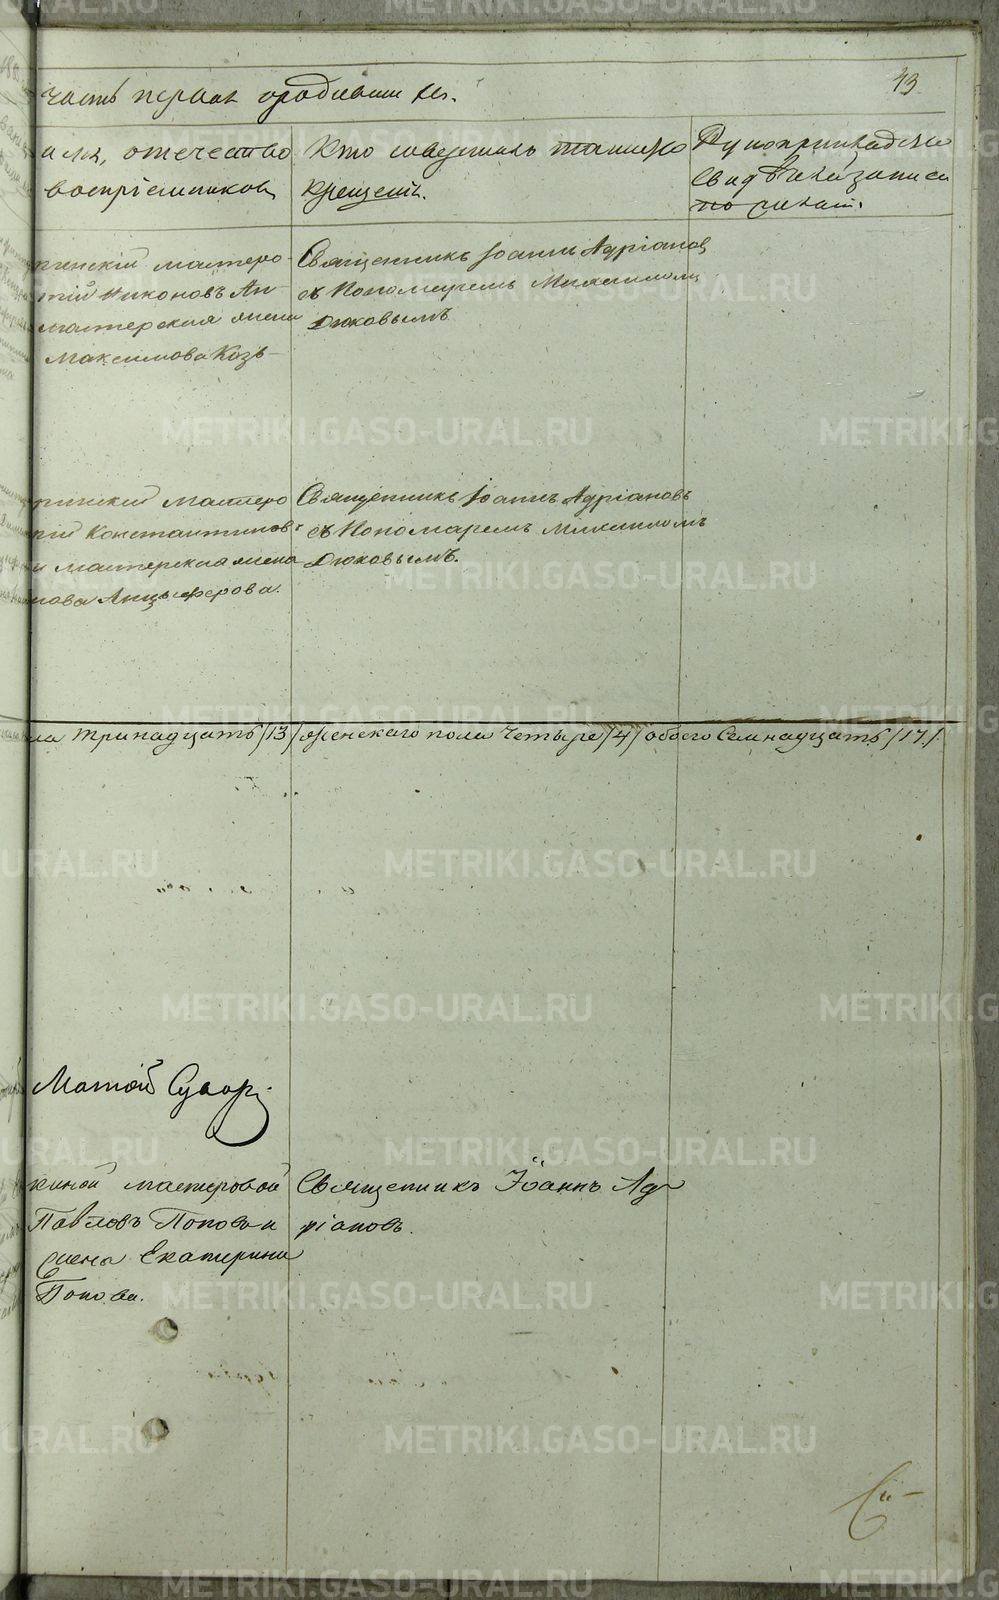 43
Часть первая о родившихся.
имя, отечество
воспріемниковъ
Кто совершалъ таинство
крещенія.
Рукоприкладство
свидѣтелей записи
по
нскій мастеро-
тій Никоновъ Ан-
мастерская жена
Максимова Козь-
Священникъ Іоаннъ Адріановъ
съ Пономаремъ Михаиломъ
Дюковымъ
ринскій мастеро
рій Константиновъ
и мастерская жена
нова Анцыферова.
Священникъ Іоаннъ Адріановъ
съ Пономаремъ Михаиломъ
Дюковымъ.
ла тринадцать /13/ женскаго пола четыре /4/ обоего семнадцать /17/
кинской мастеровой
Павловъ Поповъ и
жена Екатерина
Попова.
Священникъ Іоаннъ Ад-
ріановъ.
METRIKI.GASO-URAL.RU